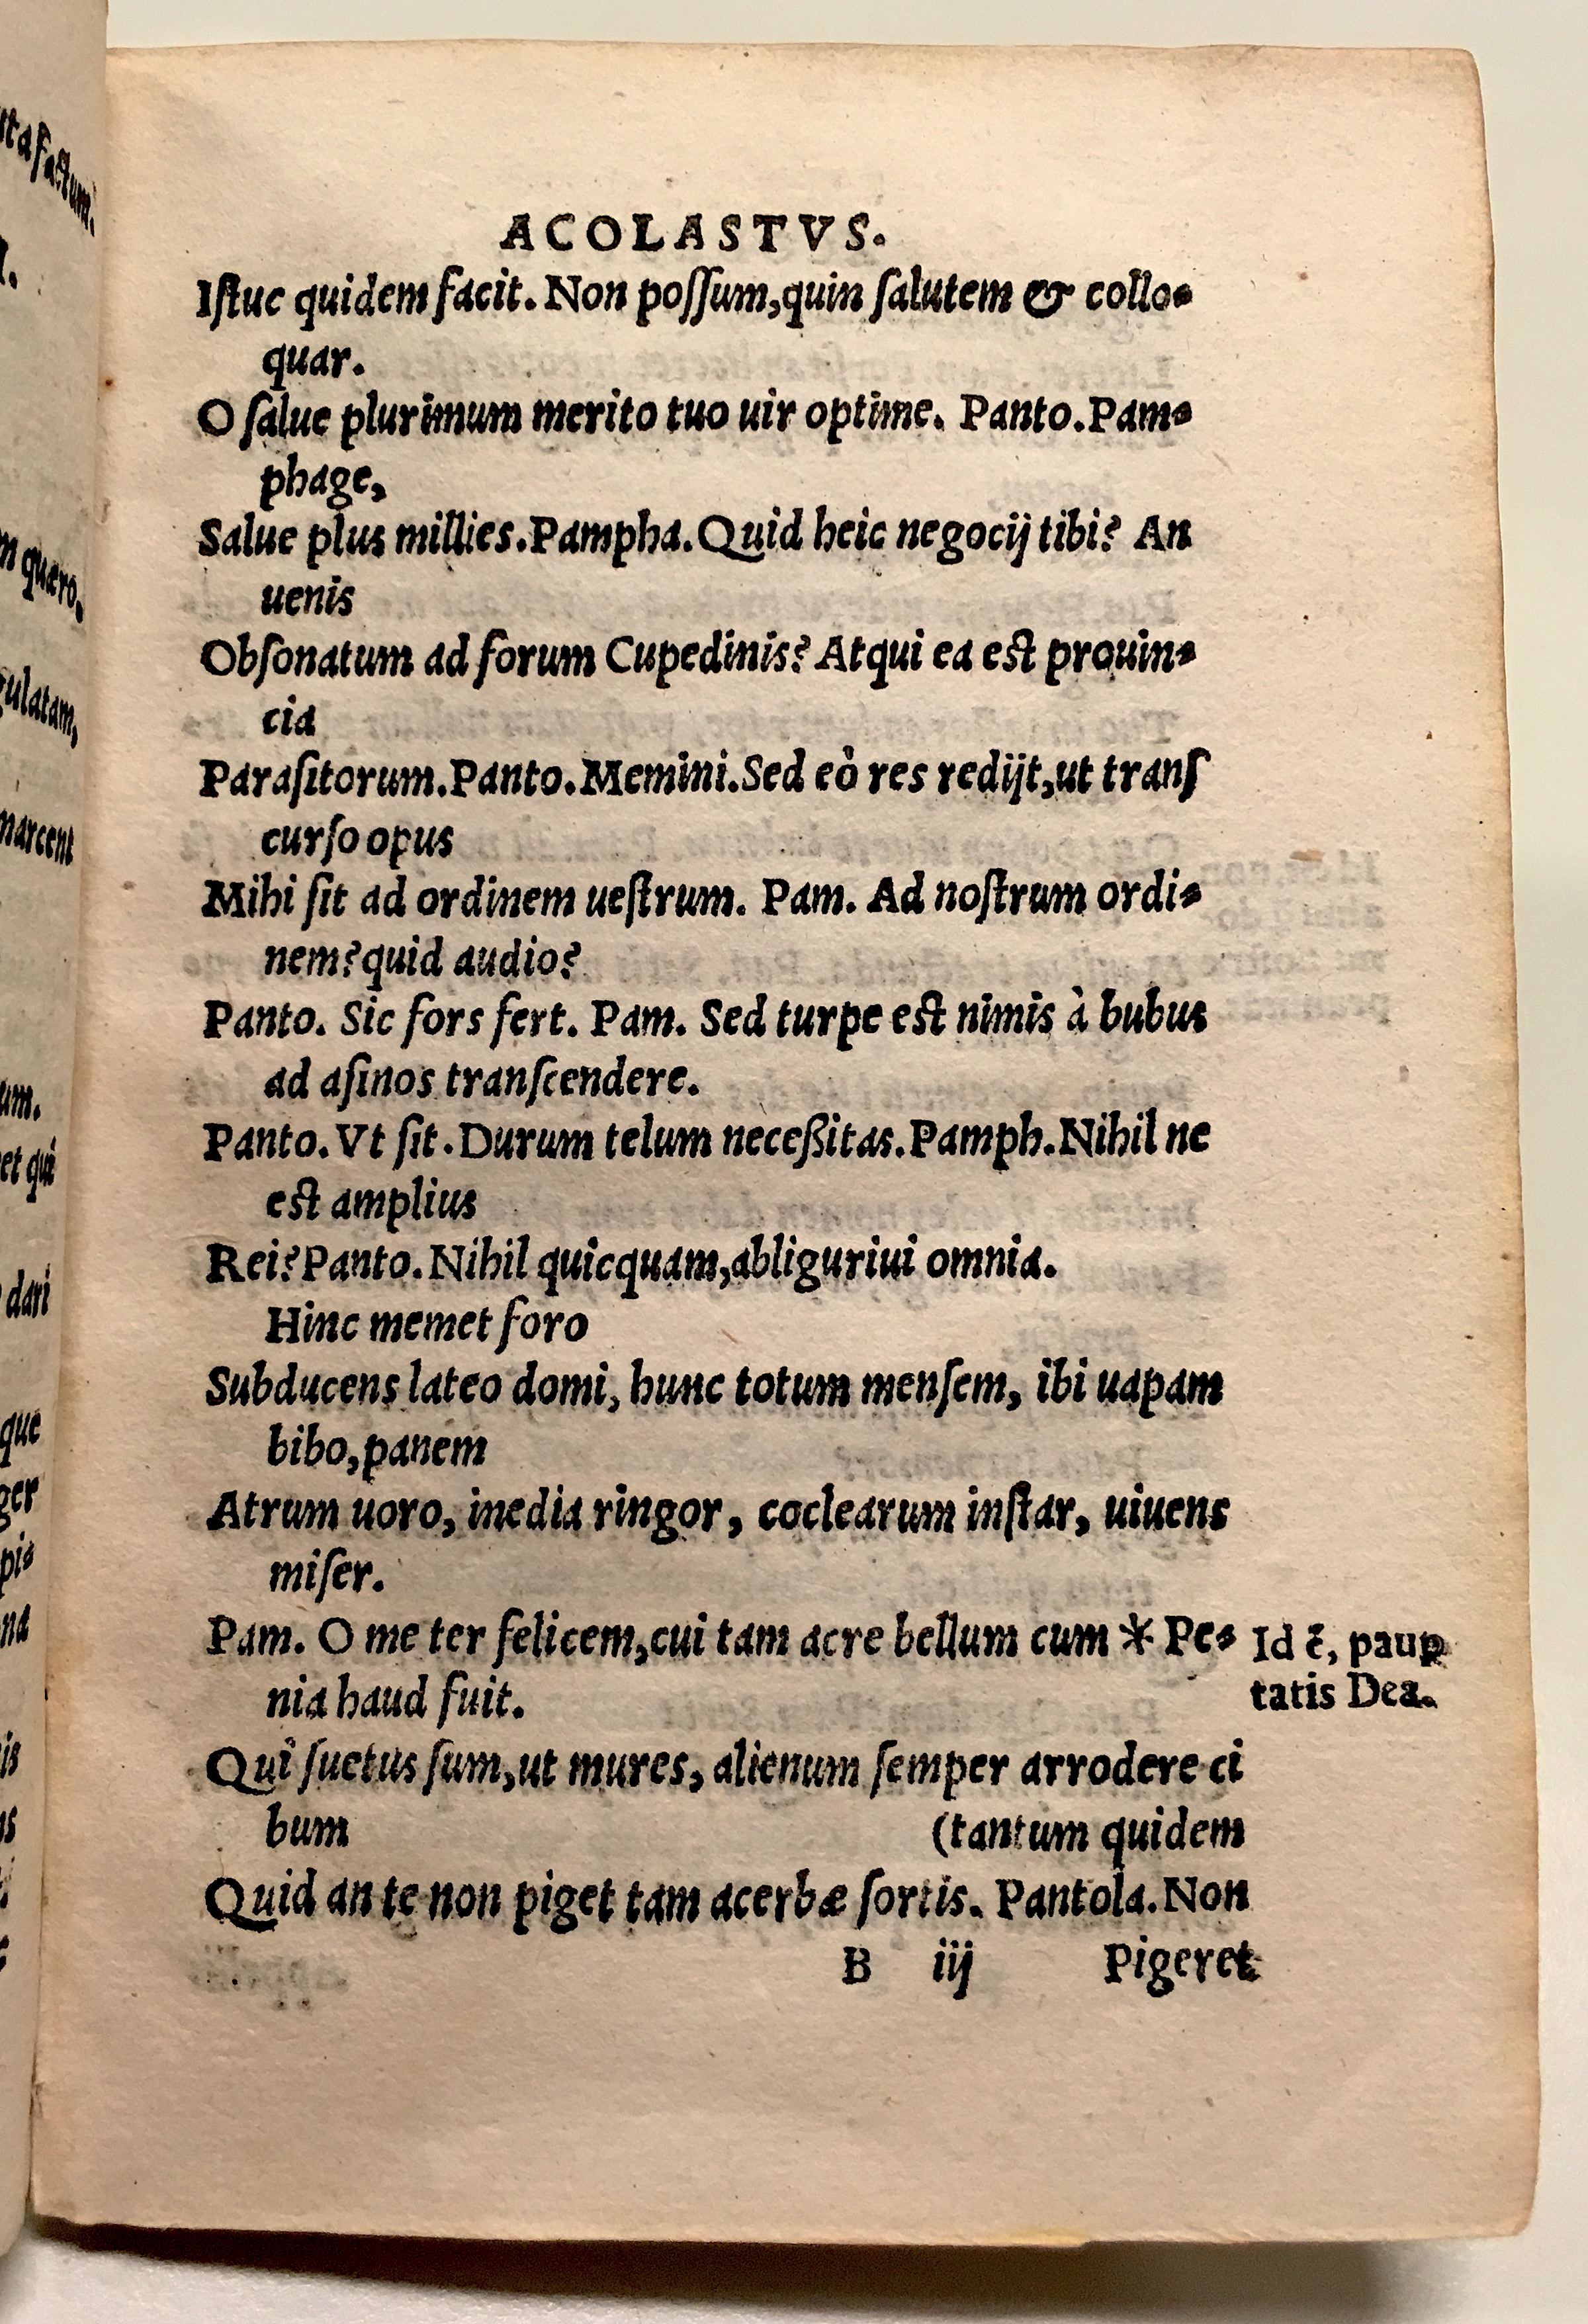 ACOLASTVS.
Iſtuc quidem facit. Non poſſum,quin ſalutem & collo⸗
quar.
O ſalue plurimum merito tuo uir optime. Panto.Pam⸗
phage,
Salue plus millies.Pampha.Quid heic negocij tibi? An
uenis
Obſonatum ad forum Cupedinis? Atqui ea est prouin⸗
cia
Paraſitorum.Panto.Memini.Sed eò res redijt,ut tranſ
curſo opus
Mihi ſit ad ordinem ueſtrum. Pam. Ad noſtrum ordi⸗
nem?quid audio?
Panto. Sic fors fert. Pam. Sed turpe est nimis à bubus
ad aſinos tranſcendere.
Panto.Vt ſit.Durum telum neceßitas.Pamph.Nihil ne
est amplius
Rei?Panto.Nihil quicquam,abliguriui omnia.
Hinc memet foro
Subducens lateo domi, hunc totum menſem, ibi uapam
bibo,panem
Atrum uoro, inedia ringor, coclearum inſtar, uiuens
miſer.
Pam. O me ter felicem,cui tam acre bellum cum * Pe⸗
nia haud fuit.
Id ē, paup̱
tatis Dea.
Quî ſuetus ſum,ut mures, alienum ſemper arrodere ci
bum (tantum quidem
Quid an te non piget tam acerbæ ſortis. Pantola.Non
B iij Pigeret
taſactum.
m quæro.
gulatam,
marcent
um.
et qui
dari
que
ger
pis
na
is